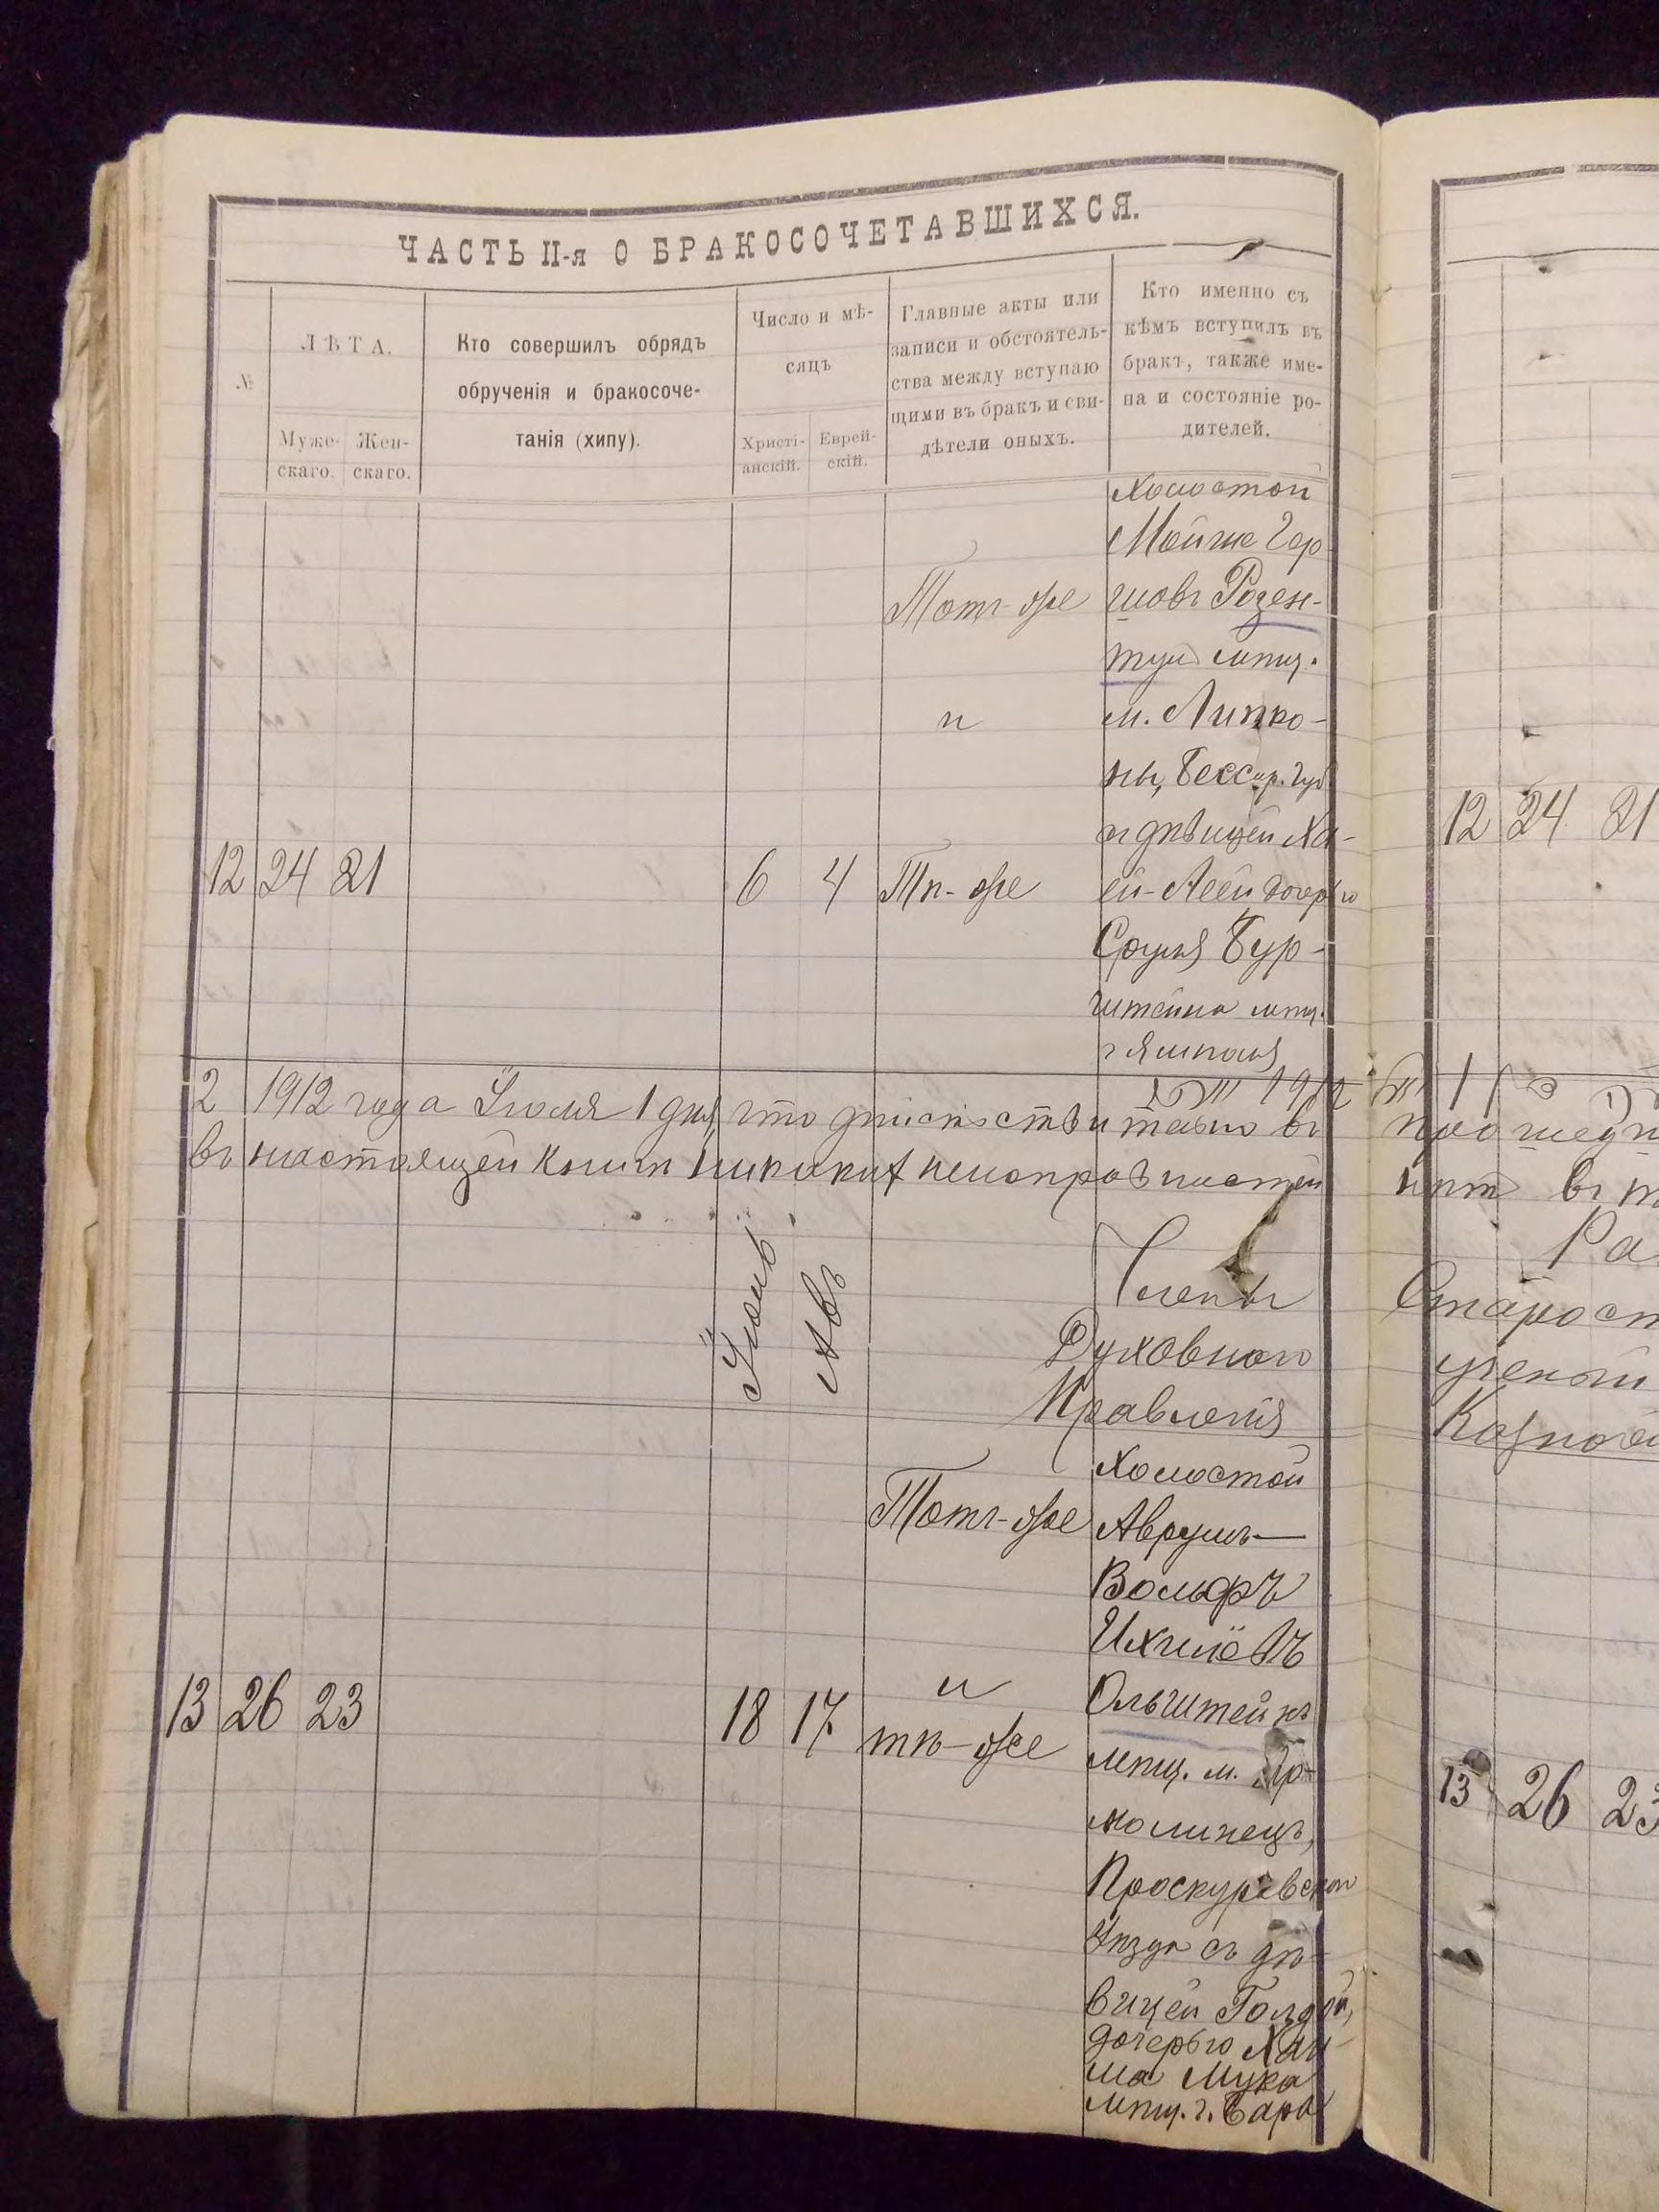 ЧАСТЬ II-я О БРАКОСОЧЕТАВШИХСЯ.
№
ЛѢТА.
Муже-
скаго.
Жен-
скаго.
Кто совершилъ обрядъ
обрученія и бракосоче-
танія (хипу).
Число и мѣ-
сяцъ
Христі-
анскій.
Еврей-
скій.
Главные акты или
записи и обстоятель-
ства между вступаю
щими въ бракъ и сви-
дѣтели оныхъ.
Кто именно съ
кѣмъ вступилъ въ
бракъ, также име-
на и состояніе ро-
дителей.
12 24 21
6 4
Тотъ-же
и
Та-же
Холостой
Мойше Гер-
шовъ Розен-
мѣщ.
м. Липко-
ны, Бессар. губ.
дѣвицей Ха-
ей-Леей дочерью
Сруля Бур-
штейна мѣщ.
г. Ямполя
2 1912 года Іюля 1 дня, что дѣйствительно въ
въ настоящей книги никакихъ неисправностей
Іюль
Авъ
Члены
Духовнаго
Правленія
13 26 23
18 17
Тотъ-же
и
та-же
Холостой
Аврумъ-
Вольфъ
Ихилёвъ
Ольштейнъ
мѣщ. м. Яр-
молинецъ,
Проскуровскаго
Уѣзда съ дѣ-
вицей Голдой,
дочерью Хаи-
ма Мука
мѣщ. г. Бара
12 24 21
нѣтъ въ
Старост
ученый
Казначей
13 26 23